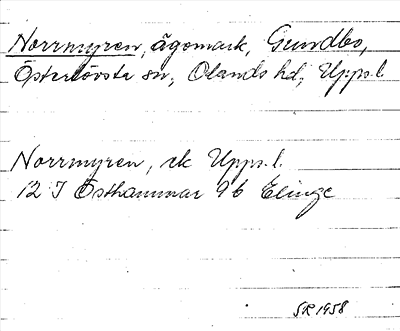 Norrmyren, ägomark, Gundbo,
Österlövsta sn, Olands hd, Upps.l.
Norrmyren, ek Upps.l.
12 I Östhammar 9b Elinge
SR 1958